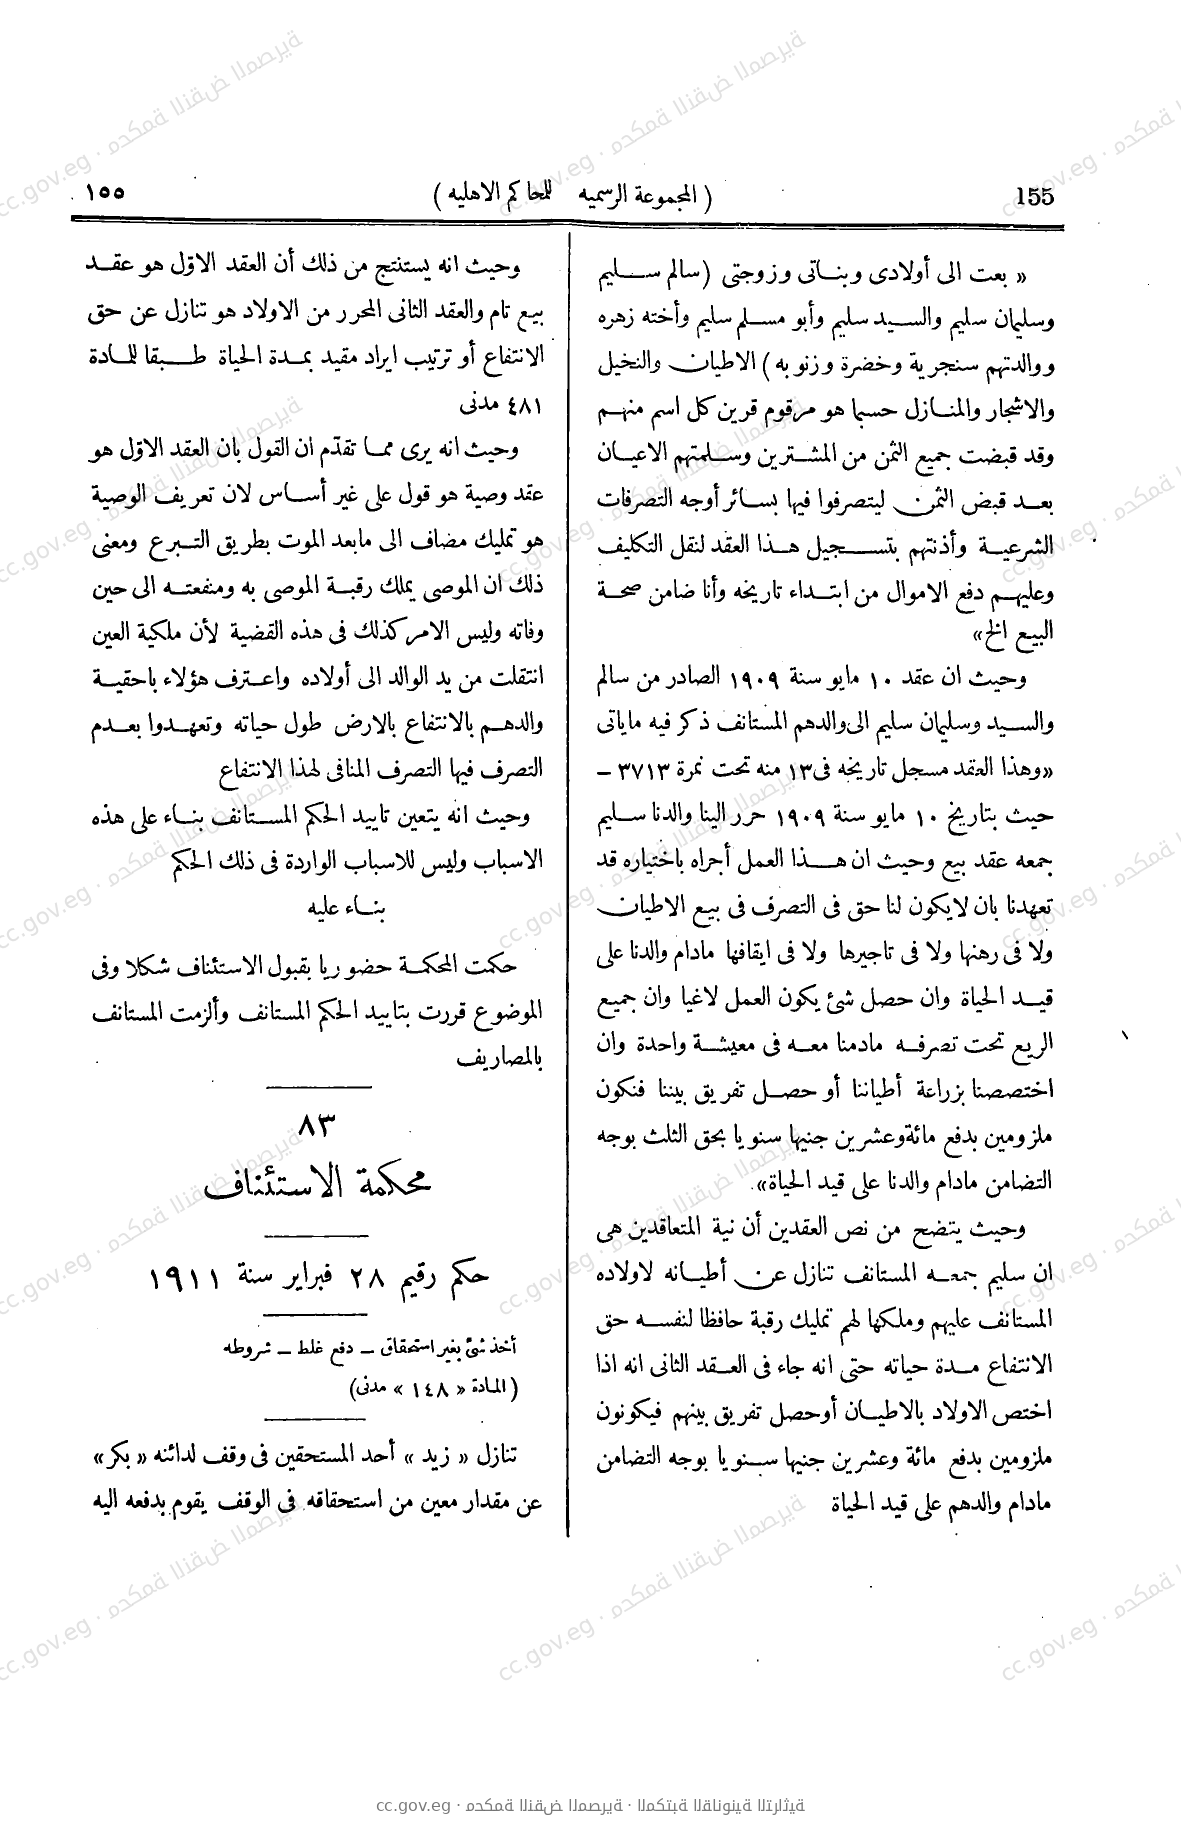 155
( المجموعة الرسميه للمحاكم الاهليه )
١٥٥
« بعت الى أولادى وبناتى وزوجتى (سالم سليم
وسليمان سليم والسيد سليم وأبو مسلم سليم وأخته زهره
ووالدتهم سنجرية وخضرة وزنوبه) الاطيان والنخيل
والاشجار والمنازل حسبما هو مرقوم قرين كل اسم منهم
وقد قبضت جميع الثمن من المشترين وسلمتهم الاعيان
بعد قبض الثمن ليتصرفوا فيها بسائر أوجه التصرفات
الشرعية وأذنتهم بتسجيل هذا العقد لنقل التكليف
وعليهم دفع الاموال من ابتداء تاريخه وأنا ضامن صحة
البيع الخ»
وحيث ان عقد ١٠ مايو سنة ١٩٠٩ الصادر من سالم
والسيد وسليمان سليم الى والدهم المستانف ذكر فيه ماياتى
«وهذا العقد مسجل تاريخه فى١٣ منه تحت نمرة ٣٧١٣ –
حيث بتاريخ ١٠ مايو سنة ١٩٠٩ حرر الينا والدنا سليم
جمعه عقد بيع وحيث ان هذا العمل أجراه باختياره قد
تعهدنا بان لايكون لنا حق فى التصرف فى بيع الاطيان
ولا فى رهنها ولا فى تاجيرها ولا فى ايقافها مادام والدنا على
قيد الحياة وان حصل شئ يكون العمل لاغيا وان جميع
الريع تحت تصرفه مادمنا معه فى معيشة واحدة وان
اختصصنا بزراعة أطياننا أو حصل تفريق بيننا فنكون
ملزومين بدفع مائةوعشرين جنيها سنويا بحق الثلث بوجه
التضامن مادام والدنا على قيد الحياة».
وحيث يتضح من نص العقدين أن نية المتعاقدين هى
ان سليم جمعه المستانف تنازل عن أطيانه لاولاده
المستانف عليهم وملكها لهم تمليك رقبة حافظا لنفسه حق
الانتفاع مدة حياته حتى انه جاء فى العقد الثانى انه اذا
اختص الاولاد بالاطيان أوحصل تفريق بينهم فيكونون
ملزومين بدفع مائة وعشرين جنيها سنويا بوجه التضامن
مادام والدهم على قيد الحياة
وحيث انه يستنتج من ذلك أن العقد الاوّل هو عقد
بيع تام والعقد الثانى المحرر من الاولاد هو تنازل عن حق
الانتفاع أو ترتيب ايراد مقيد بمدة الحياة طبقا للمادة
٤٨١ مدنى
وحيث انه يرى مما تقدّم ان القول بان العقد الاوّل هو
عقد وصية هو قول على غير أساس لان تعريف الوصية
هو تمليك مضاف الى مابعد الموت بطريق التبرع ومعنى
ذلك ان الموصى يملك رقبة الموصى به ومنفعته الى حين
وفاته وليس الامر كذلك فى هذه القضية لأن ملكية العين
انتقلت من يد الوالد الى أولاده واعترف هؤلاء باحقية
والدهم بالانتفاع بالارض طول حياته وتعهدوا بعدم
التصرف فيها التصرف المنافى لهذا الانتفاع
وحيث انه يتعين تاييد الحكم المستانف بناء على هذه
الاسباب وليس للاسباب الواردة فى ذلك الحكم
بناء عليه
حكمت المحكمة حضوريا بقبول الاستئناف شكلا وفى
الموضوع قررت بتاييد الحكم المستانف وألزمت المستانف
بالمصاريف
٨٣
محكمة الاستئناف
حكم رقيم ٢٨ فبراير سنة ١٩١١
أخذ شئ بغير استحقاق – دفع غلط – شروطه
(المادة « ١٤٨ » مدنى)
تنازل « زيد » أحد المستحقين فى وقف لدائنه « بكر»
عن مقدار معين من استحقاقه فى الوقف يقوم بدفعه اليه
cc.gov.eg · محكمة النقض المصرية · المكتبة القانونية التراثية